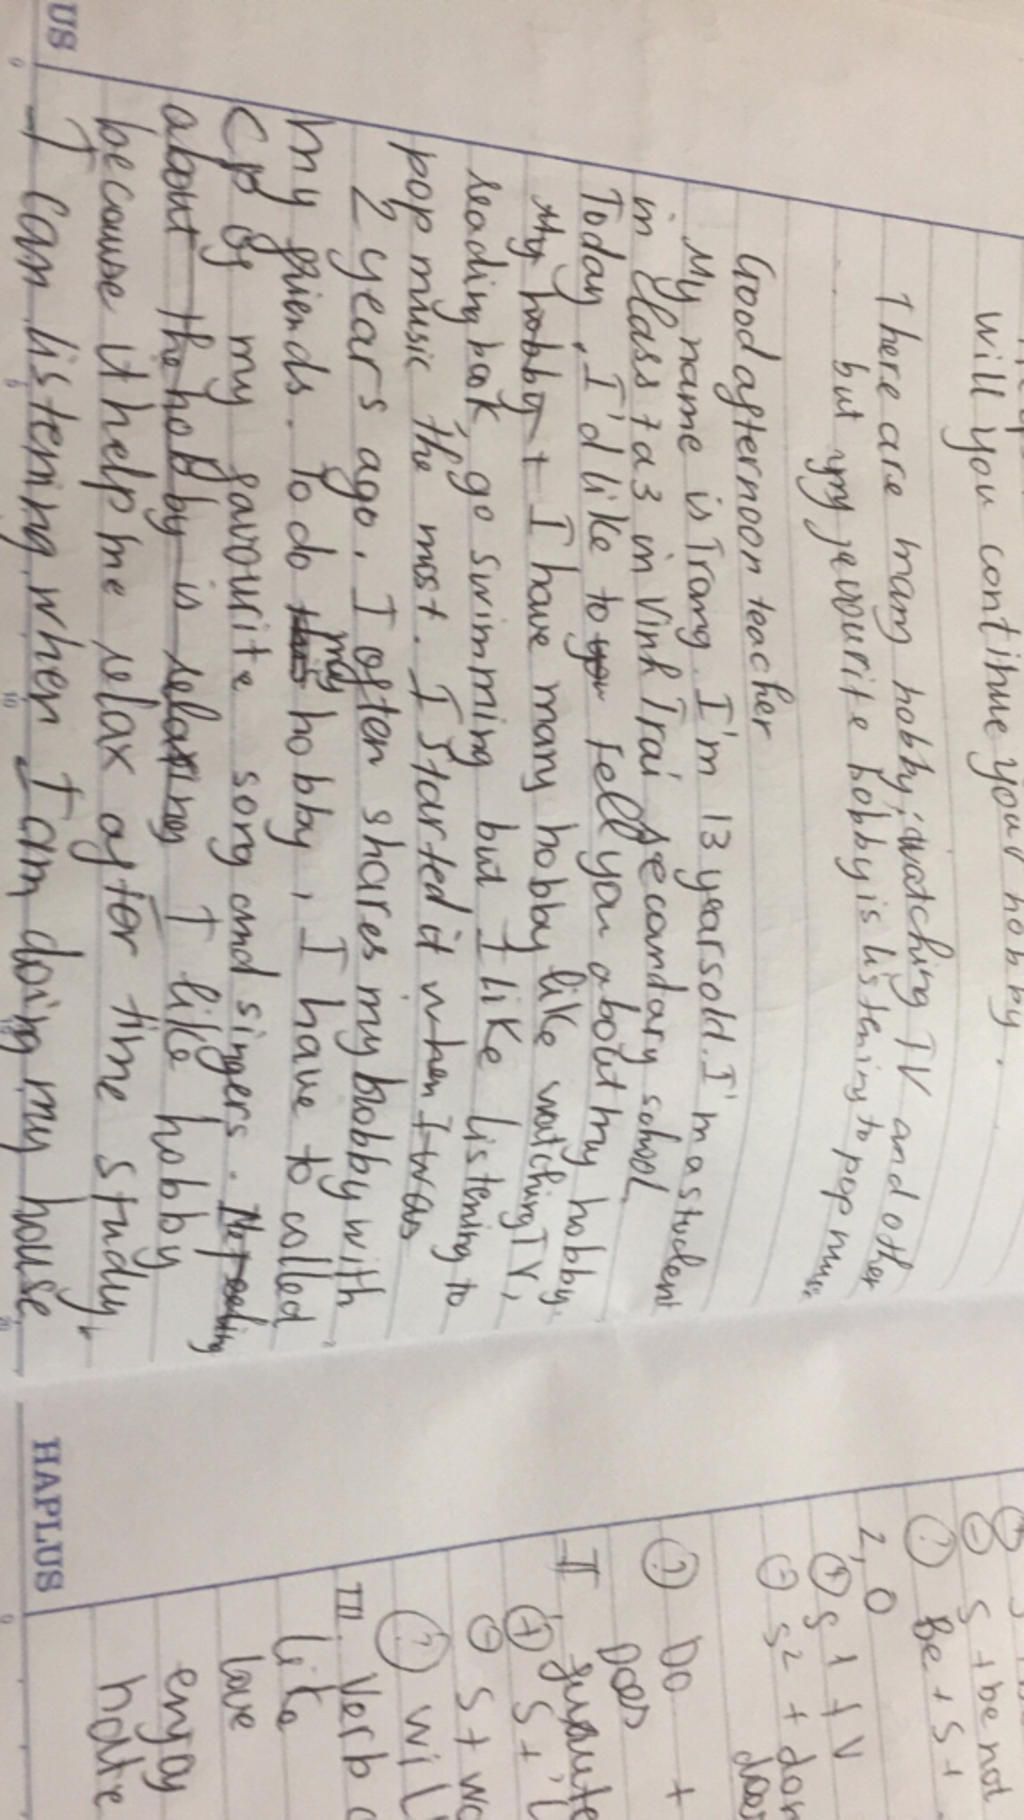 will you continue your hobby.
There are many hobby; watching TV and other
but my favourite hobby is listening to pop music
Good afternoon teacher
My name is Trang. I'm 13 years old. I'm a student
in class 7a3 in Vinh Trai secondary school
Today, I'd like to you tell you about my hobby.
My hobby + I have many hobby like watching TV,
reading book, go swimming but I like listening to
pop music the most. I started it when I was
2 years ago. I often shares my hobby with
my friends. To do this my hobby, I have to called
CP of my favourite song and singers.
about the hobby is relaxing I like hobby
because it help me relax after time study,
I can listening when I am doing my house
US
HAPLUS
S + be not
Be + S +
2, O
+ S1 + V
- S2 + don
does
? Do +
Does
II
+ S + '
- S + wo
? Wil
III. Verb
like
love
enjoy
hate